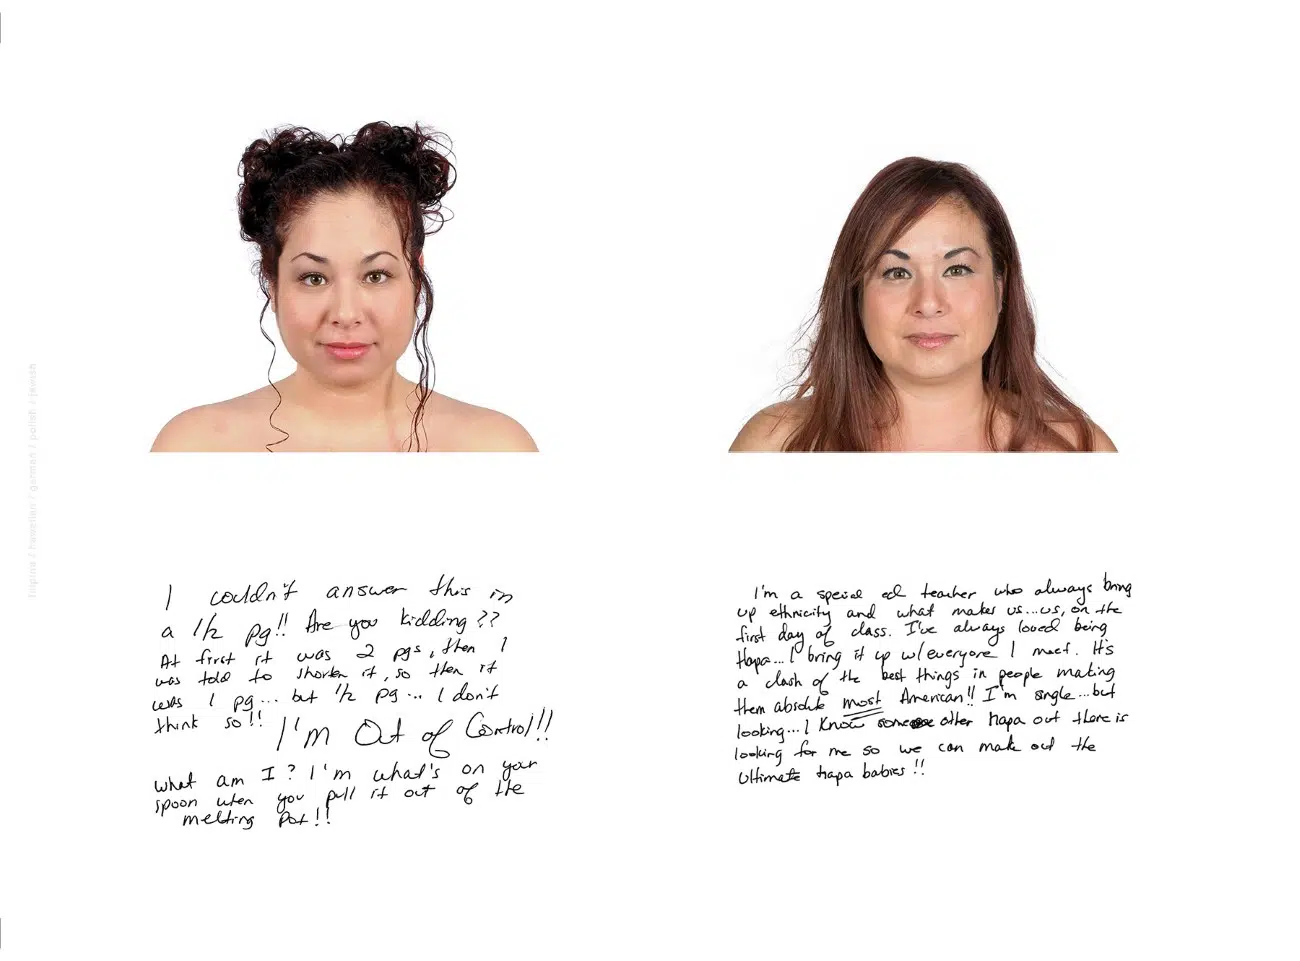 filipino / hawaiian / german / polish / jewish
I couldn't answer this in
a 1/2 pg!! Are you kidding??
At first it was 2 pgs, then I
was told to shorten it, so then it
was 1 pg... but 1/2 pg... I don't
think so!! I'm Out of Control!!
What am I? I'm what's on your
spoon when you pull it out of the
melting pot!!
I'm a special ed teacher who always bring
up ethnicity and what makes us...us, on the
first day of class. I've always loved being
Hapa...I bring it up w/everyone I meet. It's
a clash of the best things in people making
them absolute most American!! I'm single...but
looking...I know some other hapa out there is
looking for me so we can make out the
Ultimate hapa babies!!